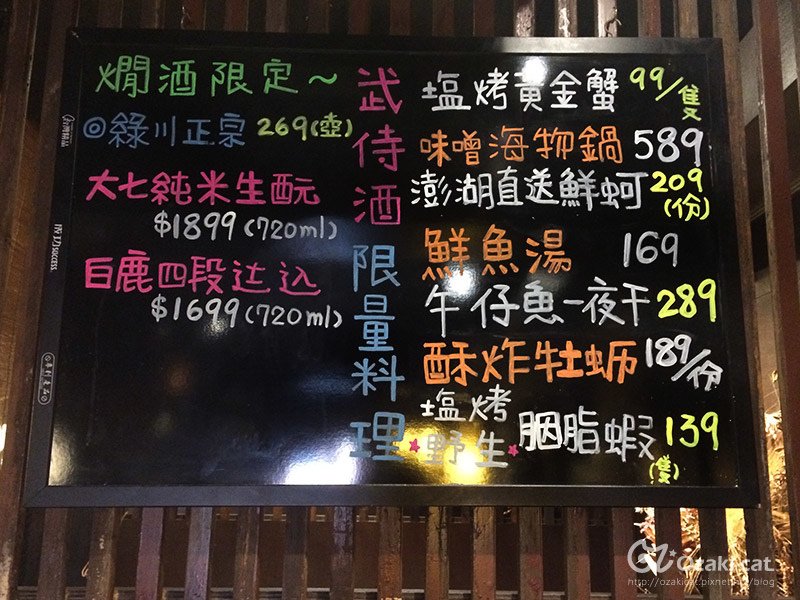 燗酒限定~
◎綠川正宗 269(壺)
大七純米生酛
$1899(720ml)
白鹿四段达込
$1699(720ml)
武侍酒
限量料理
塩烤黃金蟹 99/隻
味噌海物鍋 589
澎湖直送鮮蚵 209(份)
鮮魚湯 169
午仔魚一夜干 289
酥炸牡蛎 189/份
塩烤
★野生★胭脂蝦 139
(隻)
SUCCESS
Ozaki cat.
http://ozakicat.pixnet.net/blog